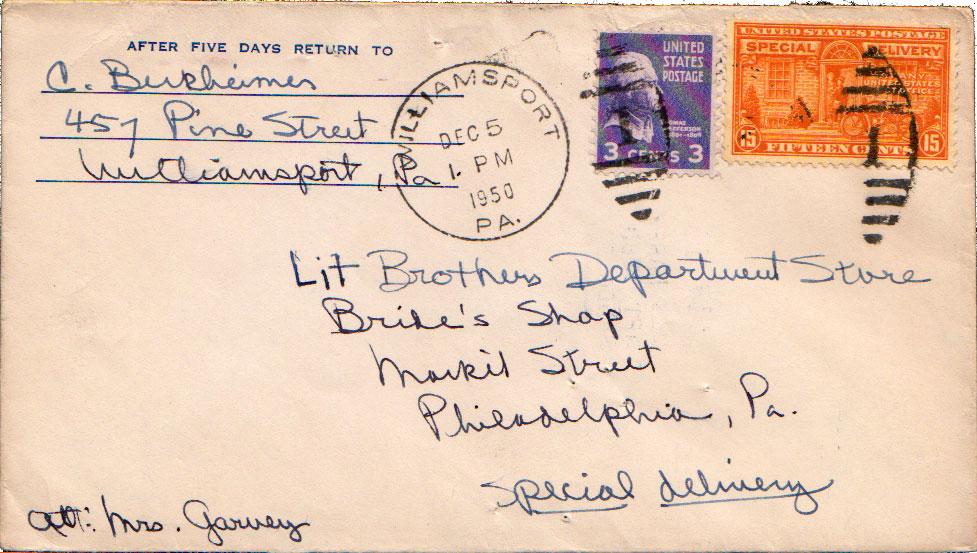 AFTER FIVE DAYS RETURN TO
C. Berkheimer
457 Pine Street
Williamsport, Pa.
WILLIAMSPORT
DEC 5
1 PM
1950
PA.
UNITED
STATES
POSTAGE
THOMAS
JEFFERSON
3 CENTS 3
UNITED STATES POSTAGE
SPECIAL DELIVERY
AT ANY
UNITED STATES
POST OFFICE
15 FIFTEEN CENTS 15
Lit Brothers Department Store
Bride's Shop
Markit Street
Philadelphia, Pa.
Special delivery
att: Mrs. Garvey